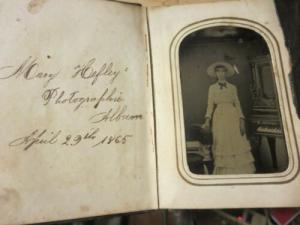 Mary Hefley's
Photographic
Album
April 29th, 1865